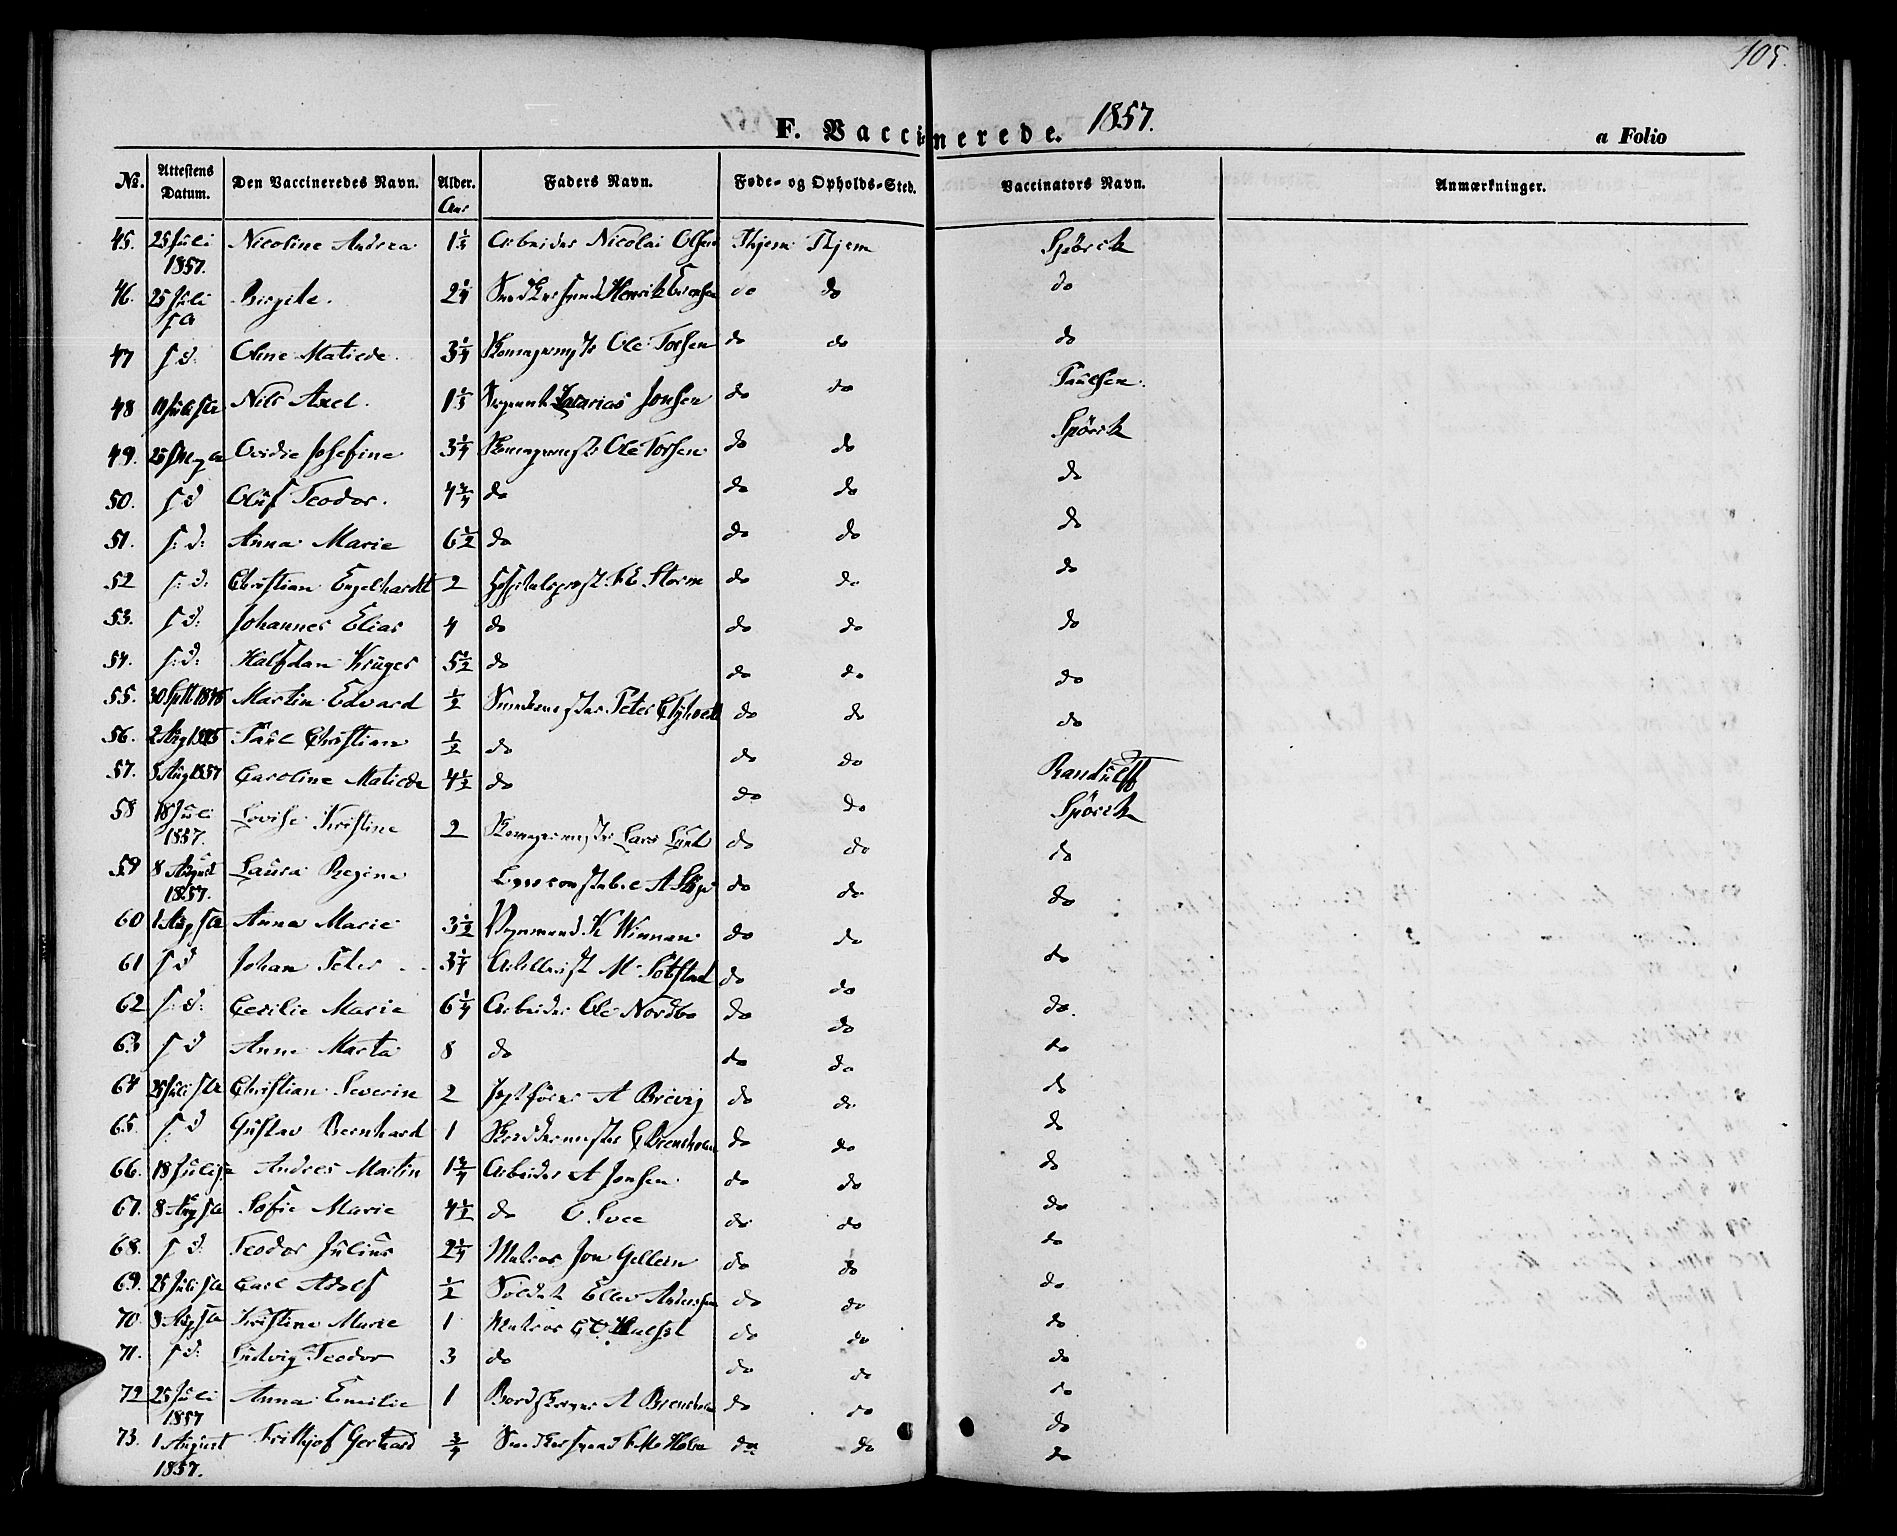 105.
F. Vaccinerede. 1857.
a Folio
No. Attestens Datum. Den Vaccineredes Navn. Alder. Faders Navn. Føde- og Opholds-Sted. Vaccinators Navn. Anmærkninger.
Aar
45. 25 Juli 1857. Nicoline Andrea 1 1/3 Arbeider Nicolai Olsen Thjem Thjem Spörck
46. 25 Juli sa Birgite. 2 1/4 Henrik do do do
47 s d. Oline Matilde 3 1/4 Ole Torsen do do do
48 Juli sa Nils Axel. 1 1/3 Zakarias Jonsen do do Paulsen.
49. 25 sa Ovidia Josefine 3 1/4 Ole Torsen do do Spörck
50. s d Oluf Teodor. 4 3/4 do do do do
51. s: d: Anna Marie 6 1/2 do do do do
52 s: d: Christian Engelhardt 2 Hospitalsprest Storm do do do
53. s d: Johannes Elias 4 do do do do
54. s: d: Halfdan Krüger 5 1/2 do do do do
55. 30 Sept Martin Edvard 1/2 Peter do do do
56. 2 Aug Paul Christian 1/2 do do do
57. 5 Aug 1857 Caroline Matilde 4 1/2 do do do Randulff
58 18 Juli 1857. Lovise Kristine 2 Lars Lund do do Spörck
59 8 August 1857. Laura Regine A do do do
60 1 Aug sa Anna Marie 3 1/2 K Winnan do do do
61 s d Johan Peter 3 1/4 Artillerist M. do do do
62 s: d: Cecilie Marie 6 1/4 Arbeider Ole Nordbo do do do.
63 s d Anne Marta 8 do do do do
64 25 Juli sa Christian Severin 2 A Brevig do do do
65. s: d Gustav Bernhard 1 do do do
66. 18 Juli sa Andreas Martin 1 3/4 Arbeider A Jonsen do do do
67. 8 Aug sa Sofie Marie 4 1/2 do O. do do do
68. s d. Teodor Julius 2 1/4 Matros Jon Gellein do do do
69. 25 Juli sa Carl Adolf 1/2 Soldat Ellev Anderssen do do do
70. 8 Aug sa Kristine Marie 1 Matros do do do
71. s d: Ludvig Teodor 3 do do do do
72 25 Juli 1857 Anna Emilie 1 A do do do
73. 1 August 1857. Frithjof Gerhard 3/4 Holm do do do
do